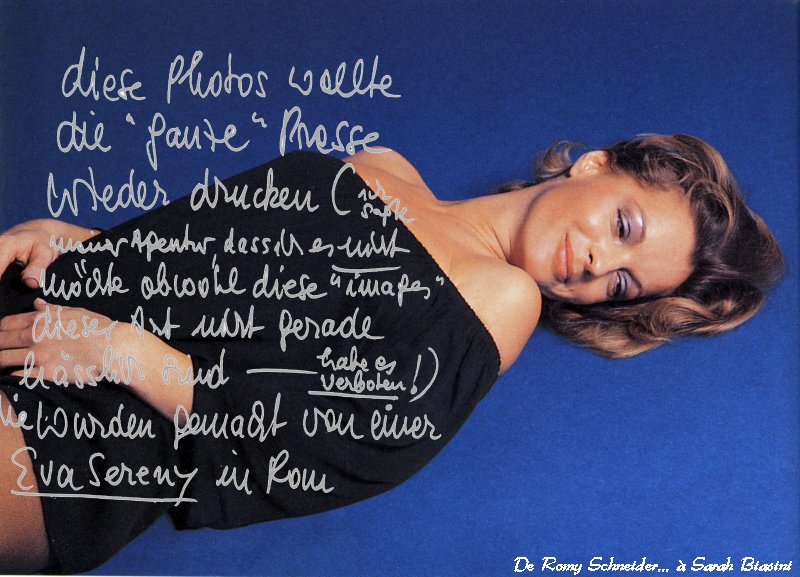 diese Photos wollte
die "ganze" Presse
wieder drucken (ich sagte
meiner Agentur, dass ich es nicht
möchte obwohl diese "images"
dieser Art nicht gerade
hässlich sind — habe es verboten!)
die wurden gemacht von einer
Eva Sereny in Rom
De Romy Schneider... à Sarah Biasini